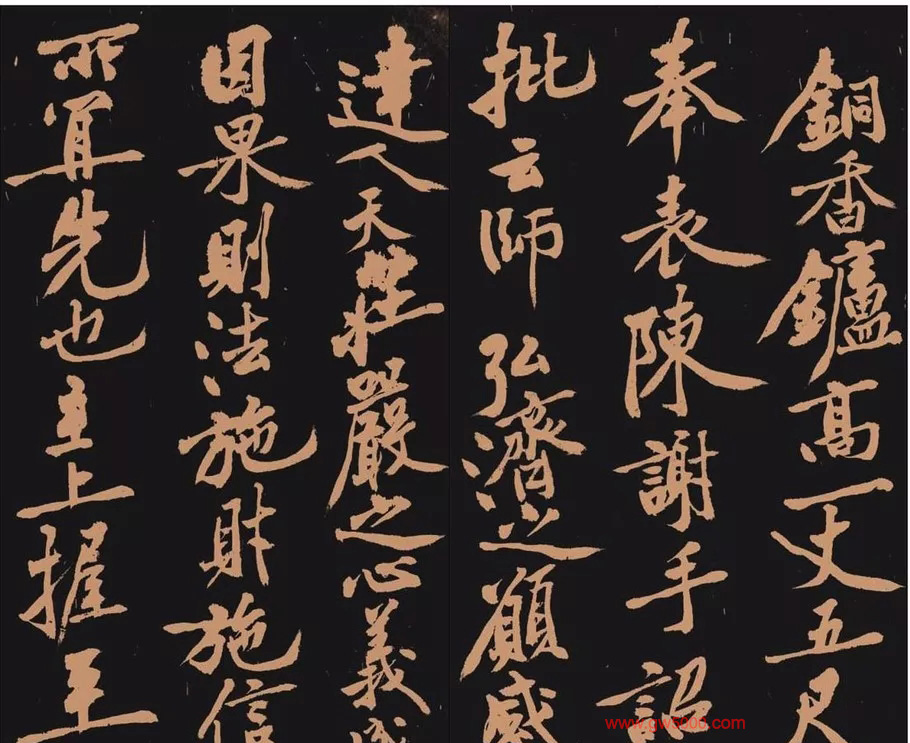 銅香鑪高一丈五尺
奉表陳謝手詔
批云師弘濟之願感
達人天莊嚴之心義
因果則法施財施信
所宜先也主上握至